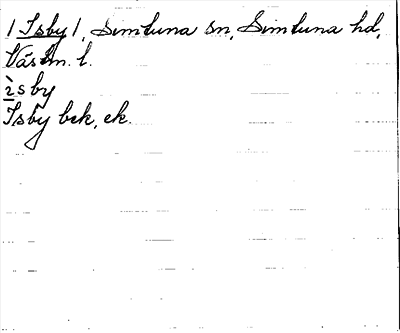 /Isby/, Simtuna sn, Simtuna hd,
Västm. l.
ìsby
Isby bek, ek.